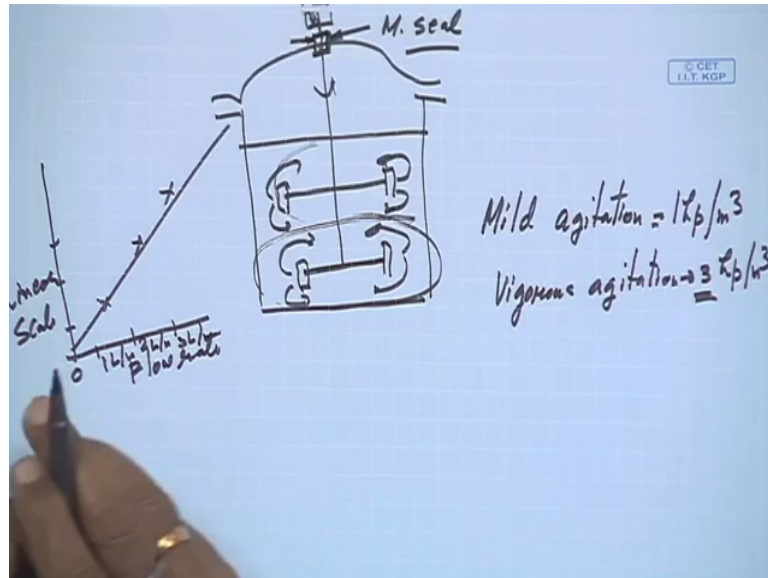 M. seal
© CET
I.I.T. KGP
Mild agitation = 1hp/m³
Vigorous agitation → 3 hp/m³
Scale
0
Flow rate